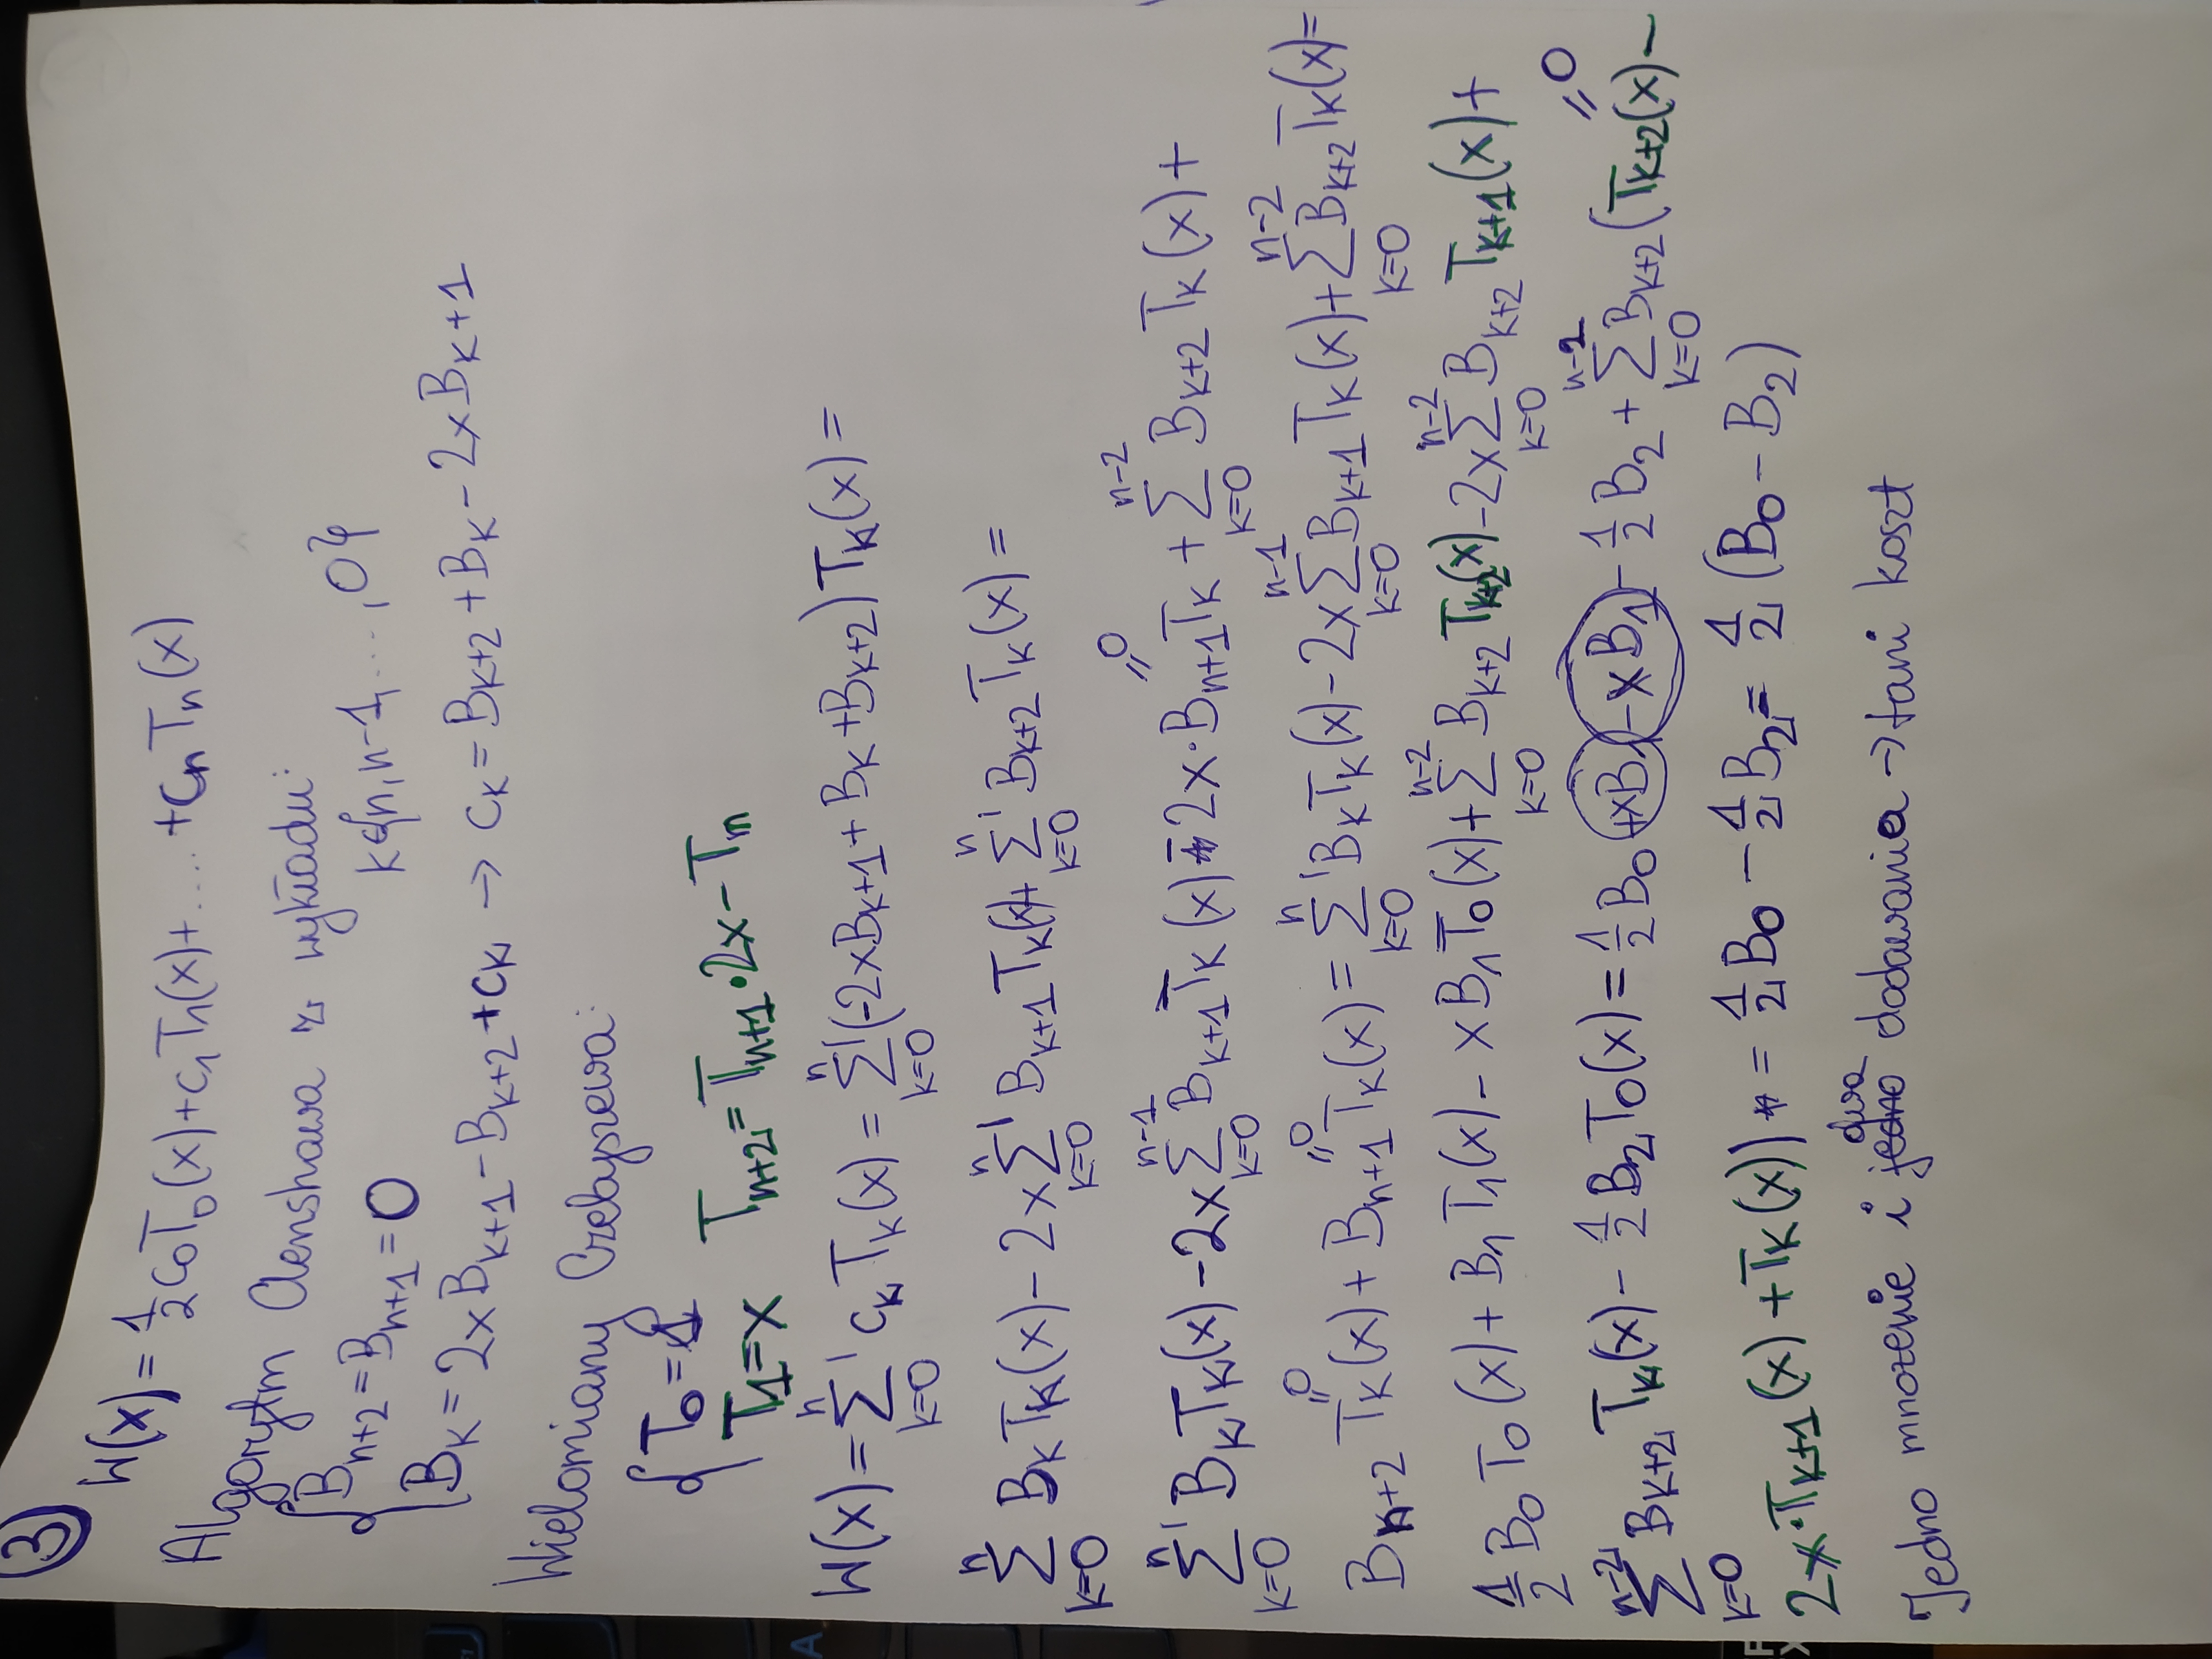 3
W(x) = 1/2 c₀T₀(x) + c₁T₁(x) + .... + cₙTₙ(x)
Algorytm Clenshawa z wykładu:
{ Bₙ₊₂ = Bₙ₊₁ = 0 k∈{n, n-1, ...., 0}
Bₖ = 2xBₖ₊₁ - Bₖ₊₂ + cₖ → cₖ = Bₖ₊₂ + Bₖ - 2xBₖ₊₁
Wielomiany Czebyszewa:
{ T₀ = 1
T₁ = x Tₙ₊₂ = Tₙ₊₁ · 2x - Tₙ
W(x) = Σ' (k=0..n) cₖTₖ(x) = Σ' (k=0..n) (-2xBₖ₊₁ + Bₖ + Bₖ₊₂)Tₖ(x) =
Σ (k=0..n) BₖTₖ(x) - 2x Σ' (k=0..n) Bₖ₊₁Tₖ(x) + Σ' (k=0..n) Bₖ₊₂Tₖ(x) =
Σ' (k=0..n) BₖTₖ(x) - 2x Σ (k=0..n-1) Bₖ₊₁Tₖ(x) - 2x·Bₙ₊₁Tₖ (=0) + Σ (k=0..n-2) Bₖ₊₂Tₖ(x) +
Bₙ₊₂Tₖ(x) (=0) + Bₙ₊₁Tₖ(x) (=0) = Σ' (k=0..n) BₖTₖ(x) - 2x Σ (k=0..n-1) Bₖ₊₁Tₖ(x) + Σ (k=0..n-2) Bₖ₊₂Tₖ(x) =
1/2 B₀T₀(x) + B₁T₁(x) - xB₁T₀(x) + Σ (k=0..n-2) Bₖ₊₂Tₖ₊₂(x) - 2x Σ (k=0..n-2) Bₖ₊₂Tₖ₊₁(x) +
Σ (k=0..n-2) Bₖ₊₂Tₖ(x) - 1/2 B₂T₀(x) = 1/2 B₀ +xB₁ -xB₁ - 1/2 B₂ + Σ (k=0..n-2) Bₖ₊₂(Tₖ₊₂(x) - (=0)
2x·Tₖ₊₁(x) + Tₖ(x)) = 1/2 B₀ - 1/2 B₂ = 1/2 (B₀ - B₂)
Jedno mnożenie i jedno dwa dodawania → tani koszt